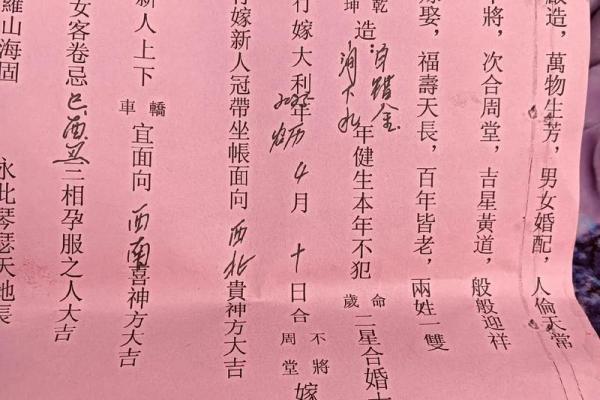 造，萬物生芳，男女婚配，人倫天常
將，次合周堂，吉星黃道，般般迎祥
娶，福壽天長，百年皆老，兩姓一雙
乾坤造：白蠟金澗下水年健生本年不犯命歲二星合婚
行嫁大利年2025农历4月十日合不將周堂嫁
行嫁新人冠帶坐帳面向西北貴神方大吉
新人上下轎車宜面向西南喜神方大吉
女客卷忌巳酉丑三相孕服之人大吉
羅山海固 永此琴瑟天地長